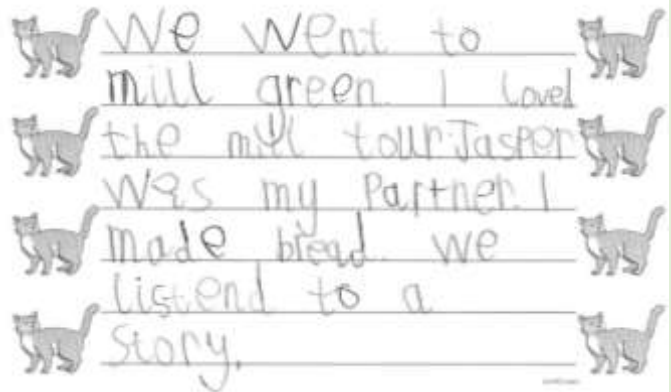 We went to
mill green. I loved
the mill tour. Jasper
was my Partner. I
made bread. We
listend to a
story.